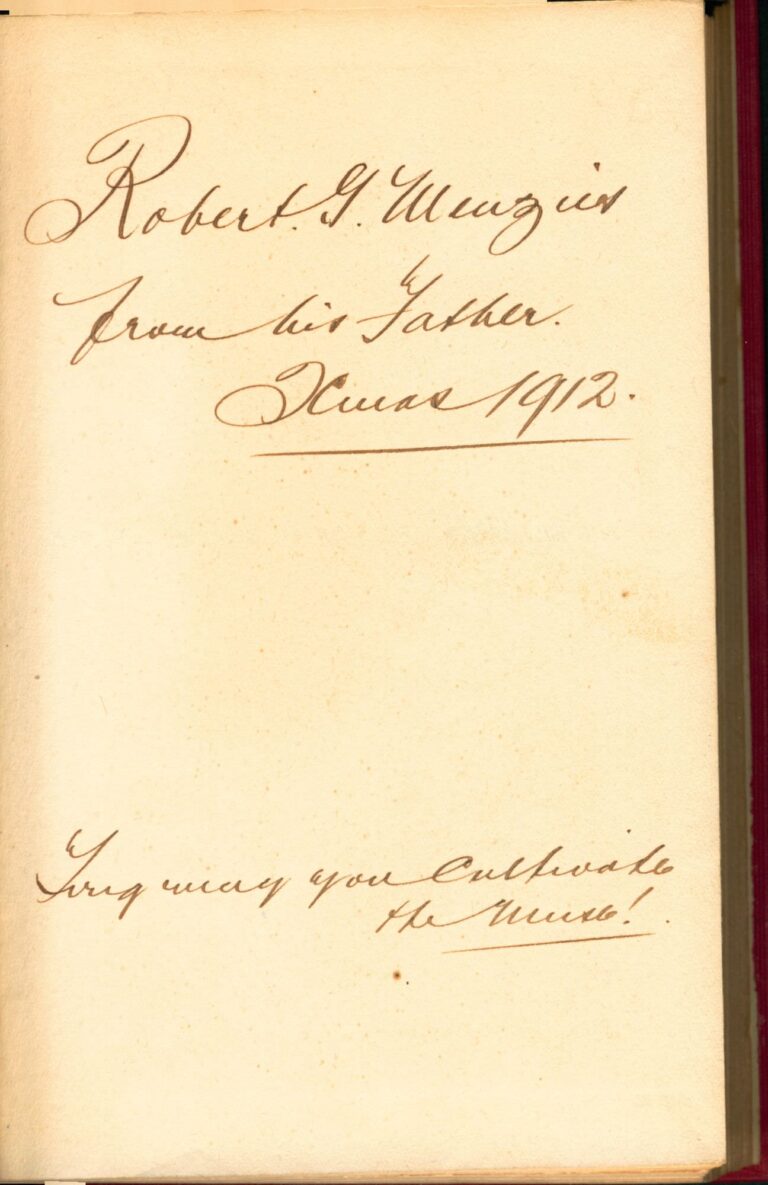 Robert. G. Menzies
from his Father.
Xmas 1912.
Long may you Cultivate
the Muse!